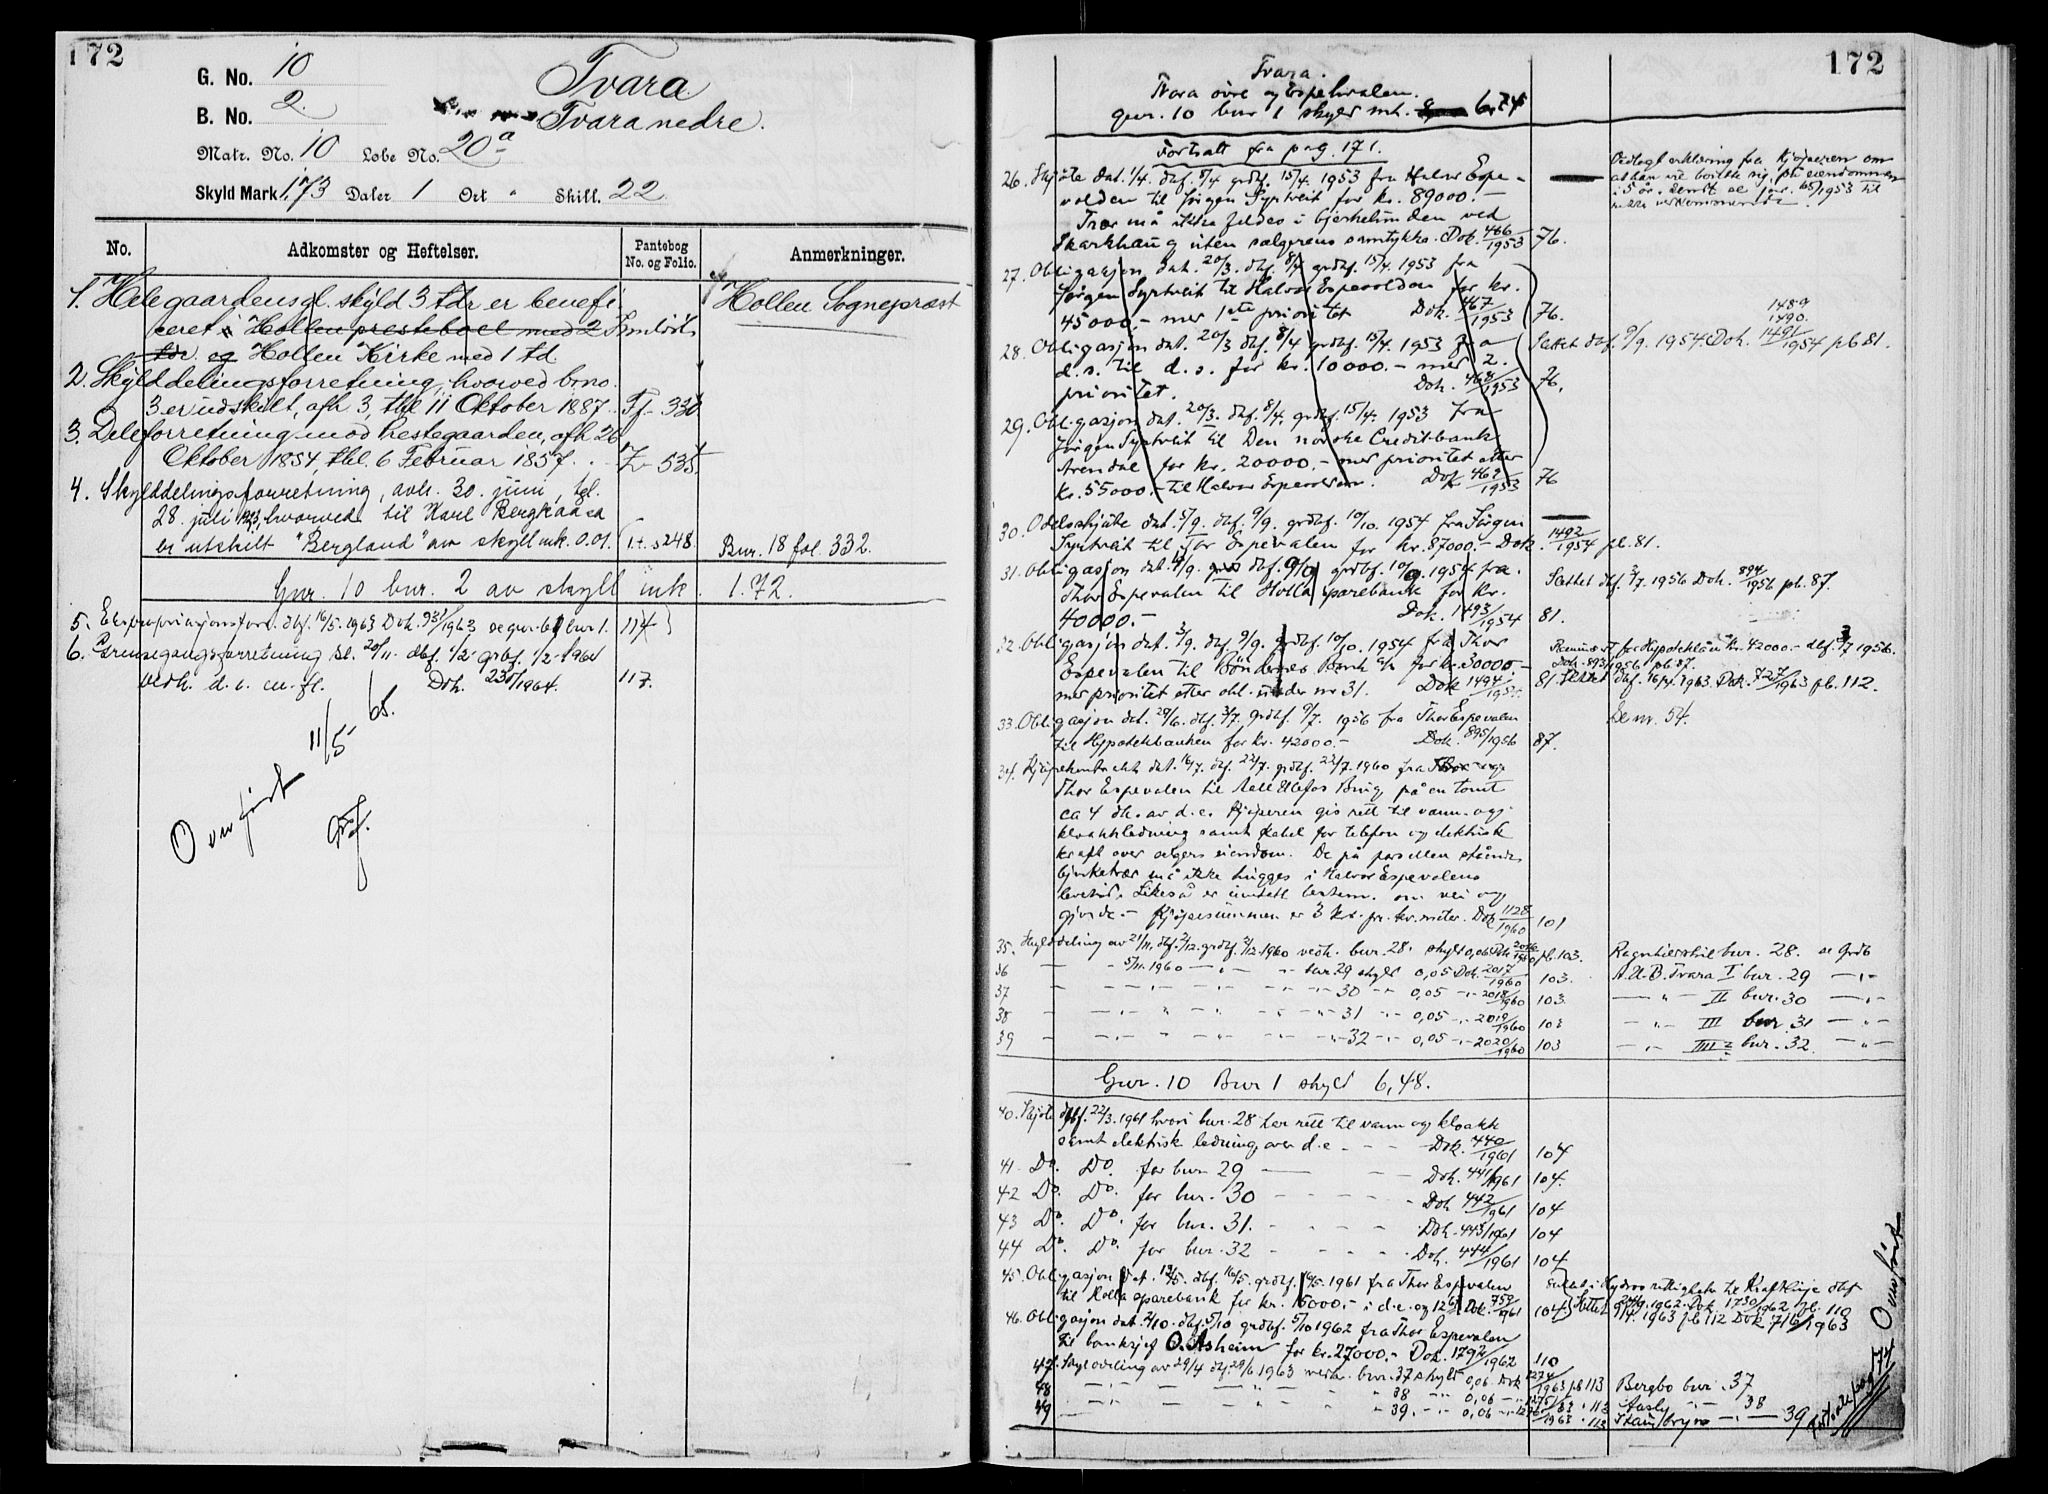 172
G. No. 10
B. No. 2.
Matr. No. 10 Løbe No. 20a
Skyld Mark 1,73 Daler 1 Ort " Skill. 22
Tvara
Tvara nedre.
No. Adkomster og Heftelser. Pantebog No. og Folio. Anmerkninger.
1. Hele gaardens gl. skyld 3 tdr er benefi-
ceret Hollen presteboel med 2
tdr og Hollen Kirke med 1 td.
Hollen Sognepræst
2. Skylddelingsforretning, hvorved bno.
3 er udskilt, afh 3, thl 11 Oktober 1887. 330
3. Deleforretning mod Prestegaarden, afh 26
Oktober 1854, thl. 6 Februar 1857. 535
4. Skylddelingsforretning, avh. 30. juni, tgl.
28. juli 1923, hvorved til Karl Bergkaasa
er utskilt "Bergland" av skyld mk. 0.01. 248. Bnr. 18 fol. 332.
Gnr. 10 bnr. 2 av skyld mk. 1.72.
5. Ekspropriasjonsforr. dbf. 16/5. 1963 Dok. 931/1963 se gnr. 61 bnr 1. 114
6. Grensegangsforretning sl. 20/11. dbf. 1/2 grbf. 1/2 1964
vedk. d. e. m. fl. Dok. 230/1964. 117.
Overført 11/5 65.
172
Tvara.
Tvara øvre og Espehvalen.
gnr. 10 bnr 1 skyld mk. 6,74
Fortsatt fra pag. 171.
26. Skjøte dat. 1/4. dbf. 8/4 grdbf. 15/4. 1953 fra Halvor Espe-
volden til Jørgen Syrtveit for kr. 89000.-
Trær må ikke feldes i bjerkelunden ved
Skarkhaug uten sælgerens samtykke. Dok. 466/1953 76.
Vedlagt erklæring fra kjøperen om
at han vil bosette sig på eiendommen
i 5 år. Sendt se jnr. 65/1953 til
rette vedkommende.
27. Obligasjon dat. 20/3. dbf. 8/4 grdbf. 15/4. 1953 fra
Jørgen Syrtveit til Halvor Espevolden for kr.
45000.- mer 1ste prioritet Dok. 467/1953 76.
28. Obligasjon dat. 20/3 dbf. 8/4 grdbf. 15/4. 1953 fra
d. s. til d. s. for kr. 10000.- mer 2.
prioritet. Dok. 468/1953 76.
1489
1490
Slettet dbf. 9/9. 1954. Dok. 1491/1954 pb 81.
29. Obligasjon dat. 20/3. dbf. 8/4. grdbf. 15/4. 1953 fra
Jørgen Syrtveit til Den norske Creditbank
Arendal for kr. 20000.- mer prioritet etter
kr. 55000.- til Halvor Espevolden. Dok. 469/1953 76
30. Odelsskjøte dat. 5/9. dbf. 9/9. grdbf. 10/10. 1954 fra Jørgen
Syrtveit til Tor Espevalen for kr. 87000.- Dok. 1492/1954 pb. 81.
31. Obligasjon dat. 9/9. dbf. 9/9 grdbf. 10/9. 1954 fra
Thor Espevalen til Holla sparebank for kr.
40000.- Dok. 1493/1954 81.
Slettet dbf. 3/7. 1956 Dok. 894/1956 pb. 87.
32. Obligasjon dat. 3/9. dbf. 9/9. grdbf. 10/10. 1954 fra Thor
Espevalen til Bøndernes Bank A/S for kr. 30000.-
mer prioritet etter obl. under nr 31. Dok 1494/1954. 81.
for Hypoteklån kr. 42000.- dbf. 3/7 1956.
Dok. 893/1956 pb 87.
Slettet dbf. 16/4. 1963. Dok. 727/1963 pb. 112.
Se nr. 54.
33. Obligasjon dat. 29/6. dbf. 3/7. grdbf. 9/7. 1956 fra Thor Espevalen
til Hypotekbanken for kr. 42000.- Dok. 895/1956 87.
34. Kjøpekontrakt dat. 16/7. dbf. 22/7. grdbf. 22/7. 1960 fra
Thor Espevalen til Aall Ulefos Brug på en tomt
ca 4 dk. av d. e. Kjøperen gis rett til vann- og
kloakkledning samt kabel for telefon og elektrisk
kraft over selgers eiendom. De på parsellen stående
bjerketrær må ikke hugges i Halvor Espevolens
levetid. Likeså er inntatt bestem. om vei og
gjerde.- Kjøpesummen er 3 kr. pr. kv. meter. Dok 1128/1960 101
35. Skylddeling av 21/11. dbf. 2/12. grdbf. 2/12 1960 vedk. bnr. 28. skyld 0,06 Dok 2016/1960 pb. 103. bnr. 28. se Grdb
36 — " 5/11. 1960 — " — bnr. 29 skyld 0,05 Dok. 2017/1960 103. A.U.B. Tvara I bnr. 29 — " —
37 — " — 30 — 0,05 — 2018/1960 103. — " — II bnr. 30 — " —
38 — " — 31 — 0,05 — 2019/1960 103 — " — III bnr. 31 — " —
39 — " — 32 — 0,05 — 2020/1960 103 — " — IIII bnr. 32 — " —
Gnr. 10 Bnr 1 skyld 6,48.
40. Skjøte dbf. 22/3. 1961 hvori bnr. 28 har rett til vann og kloakk
samt elektrisk ledning over d. e. — Dok. 440/1961 104
41 Do. Do. for bnr 29 — Dok. 441/1961 104.
42 Do. Do. for bnr. 30 — Dok. 442/1961 104
43 Do. Do. for bnr. 31. — Dok. 443/1961 104
44 Do. Do. for bnr. 32 — Dok. 444/1961 104
45. Obligasjon dat. 13/5. dbf. 16/5. grdbf. 16/5. 1961 fra Thor Espevalen
til Holla sparebank for kr. 15000.- i d. e. og Dok. 759/1961 104
Hydros rettigheter til Kraftlinje dbf
24/9. 1962. Dok 1730/1962 pb. 110
Slettet 9/4. 1963 pb 112 Dok 716/1963
46. Obligasjon dat. 2/10. dbf. 5/10 grdbf. 5/10 1962 fra Thor Espevalen
til banksjef O. Åsheim for kr. 27000.- Dok. 1792/1962 110
47. Skylddeling av 29/4 dbf. 29/6 1963 vedk. bnr. 37 skyld 0,06 Dok 1274/1963 pb 113 Bergbo bnr. 37
48 — " — 38 — 0,06 — 1275/63 113 Aasly — " — 38
49 — " — 39. — 0,06 — 1276/1963 113 — " — 39
Forts. pag 174 Overført